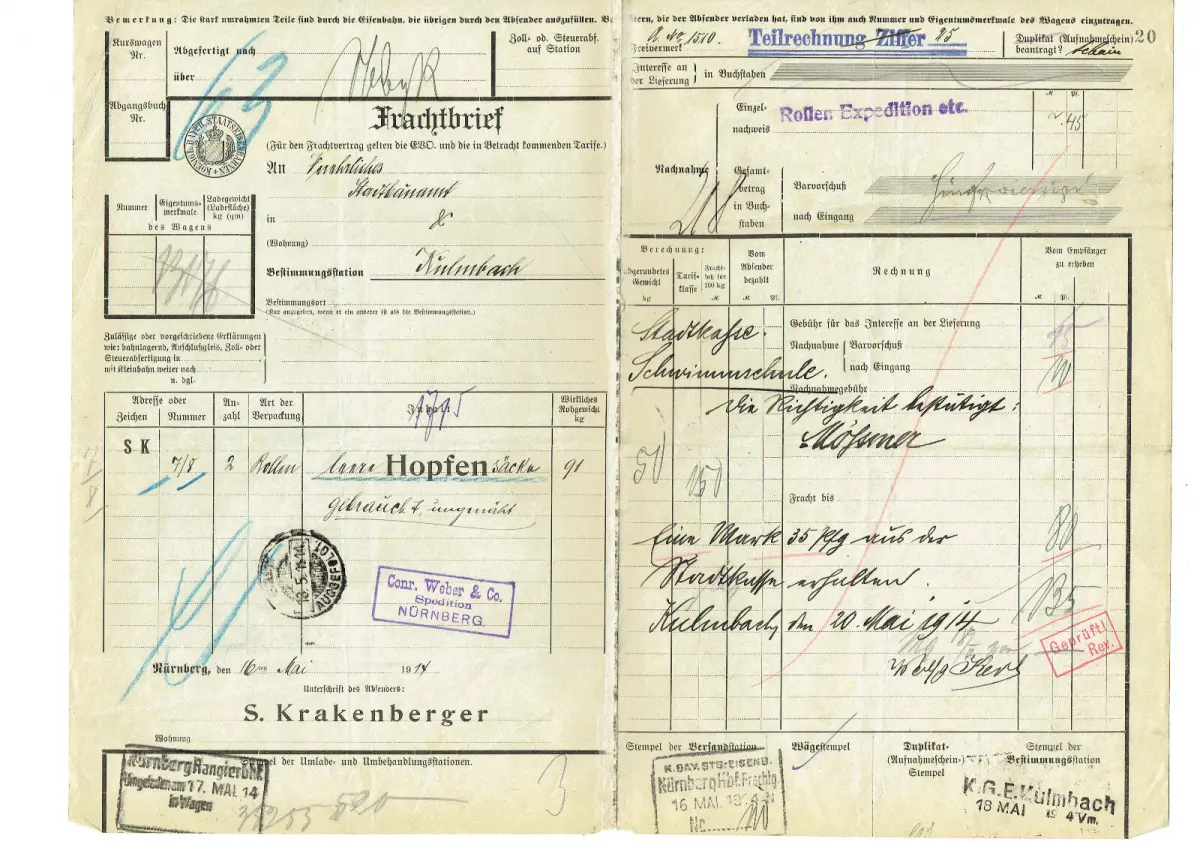 Bemerkung: Die stark umrahmten Teile sind durch die Eisenbahn, die übrigen durch den Absender auszufüllen.
Kurswagen Nr.
Abgefertigt nach
über
Zoll- od. Steuerabf. auf Station
Abgangsbuch Nr.
63
KÖNIGL. BAYER. STAATSEISENBAHNEN
Frachtbrief
(Für den Frachtvertrag gelten die EVO. und die in Betracht kommenden Tarife.)
An
Stadtbauamt
in
(Wohnung)
Bestimmungsstation Kulmbach
Bestimmungsort
(Nur anzugeben, wenn er ein anderer ist als die Bestimmungsstation.)
Nummer
Eigentums-merkmale
Ladegewicht (Ladefläche) kg (qm)
des Wagens
Zulässige oder vorgeschriebene Erklärungen
wie: bahnlagernd, Anschlußgleis, Zoll- oder
Steuerabfertigung in
mit Kleinbahn weiter nach
u. dgl.
Adresse oder
Zeichen Nummer
An-zahl
Art der Verpackung
Inhalt
Wirkliches Rohgewicht kg
1715
S K 7/8 2 Rollen leere Hopfensäcke 90
gebraucht, ungenäht
18.5.14
AUSGEFOLGT
Conr. Weber & Co.
Spedition
NÜRNBERG.
Nürnberg, den 16ten Mai 1914
Unterschrift des Absenders:
S. Krakenberger
Wohnung
Stempel der Umlade- und Umbehandlungsstationen.
Nürnberg Rangierbhf.
Eingetroffen am 17. MAI. 14
in Wagen
3
ern, die der Absender verladen hat, sind von ihm auch Nummer und Eigentumsmerkmale des Wagens einzutragen.
1510.
Freivermerk
Teilrechnung Ziffer 25
Duplikat (Aufnahmeschein) beantragt?
20
Interesse an der Lieferung
in Buchstaben
Einzel-nachweis
Rollen Expedition etc.
45
Nachnahme
Gesamt-betrag in Buch-staben
Barvorschuß
nach Eingang
Berechnung:
abgerundetes Gewicht kg
Tarif-klasse
Fracht-satz für 100 kg
Vom Absender bezahlt
Rechnung
Vom Empfänger zu erheben
Gebühr für das Interesse an der Lieferung
Nachnahme
Barvorschuß
nach Eingang
Nachnahmegebühr
45
10
Stadtkasse.
Schwimmschule.
Die Richtigkeit bestätigt:
Mössmer
150
Fracht bis
80
Eine Mark 35 Pfg aus der
Stadtkasse erhalten.
135
Kulmbach, den 20. Mai 1914
Geprüft!
Rev.
Stempel der Versandstation
Wägestempel
Duplikat-(Aufnahmeschein-) Stempel
Stempel der Bestimmungsstation
K. BAY. STS-EISENB.
Nürnberg Hbf. Frachtg
16 MAI. 1914-N
No
K.G.E. Kulmbach
18 MAI 1914 Vm.